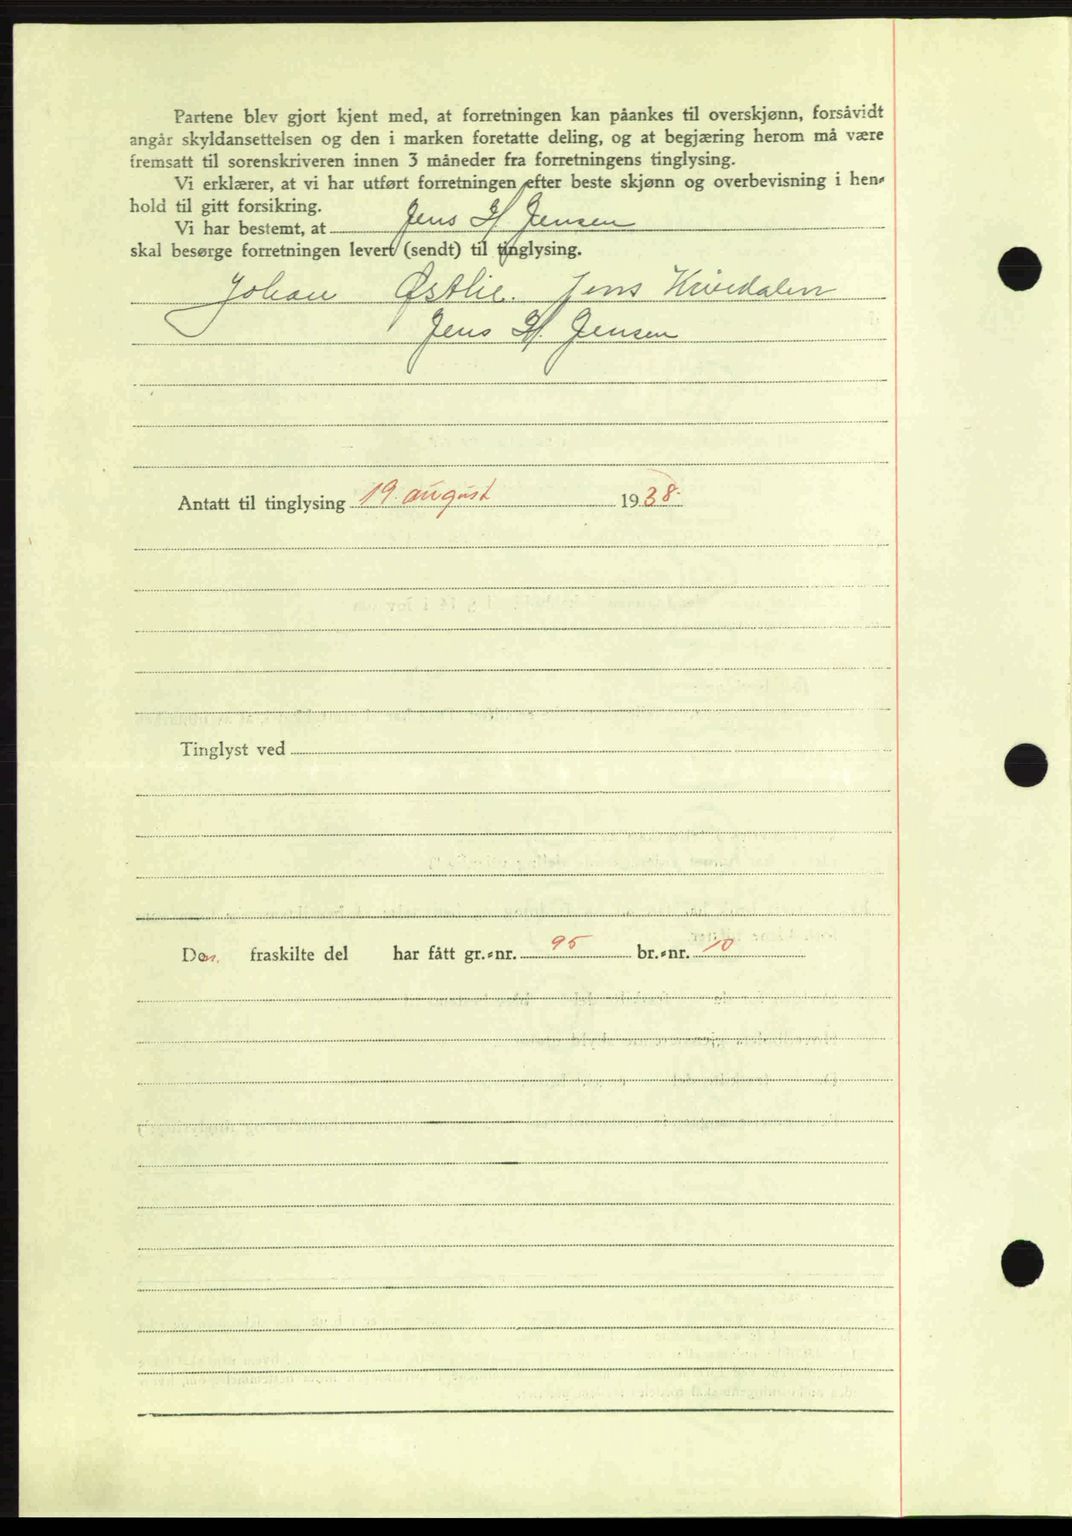 Partene blev gjort kjent med, at forretningen kan påankes til overskjønn, forsåvidt
angår skyldansettelsen og den i marken foretatte deling, og at begjæring herom må være
fremsatt til sorenskriveren innen 3 måneder fra forretningens tinglysing.
Vi erklærer, at vi har utført forretningen efter beste skjønn og overbevisning i hen-
hold til gitt forsikring.
Vi har bestemt, at Jens H. Jensen
skal besørge forretningen levert (sendt) til tinglysing.
Johan Østlie. Jens Kivedalen
Jens H. Jensen
Antatt til tinglysing 19. august 1938.
Tinglyst ved
Den. fraskilte del har fått gr.-nr. 95 br.-nr. 10